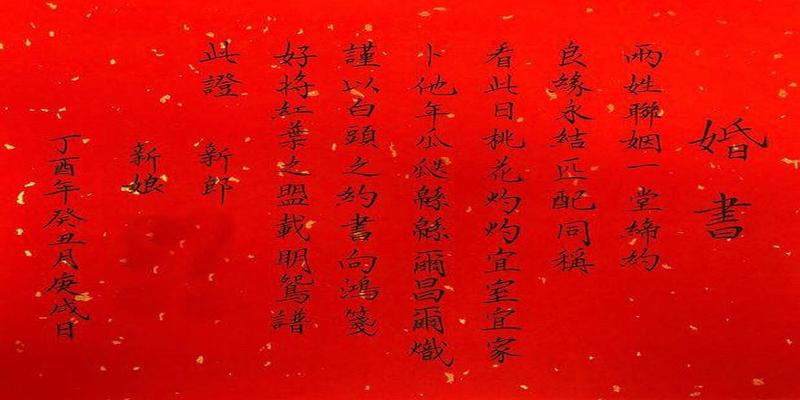 婚書
兩姓聯姻一堂締約
良緣永結匹配同稱
看此日桃花灼灼宜室宜家
卜他年瓜瓞緜緜爾昌爾熾
謹以白頭之約書向鴻箋
好將紅葉之盟載明鴛譜
此證
新郎
新娘
丁酉年癸丑月庚戌日